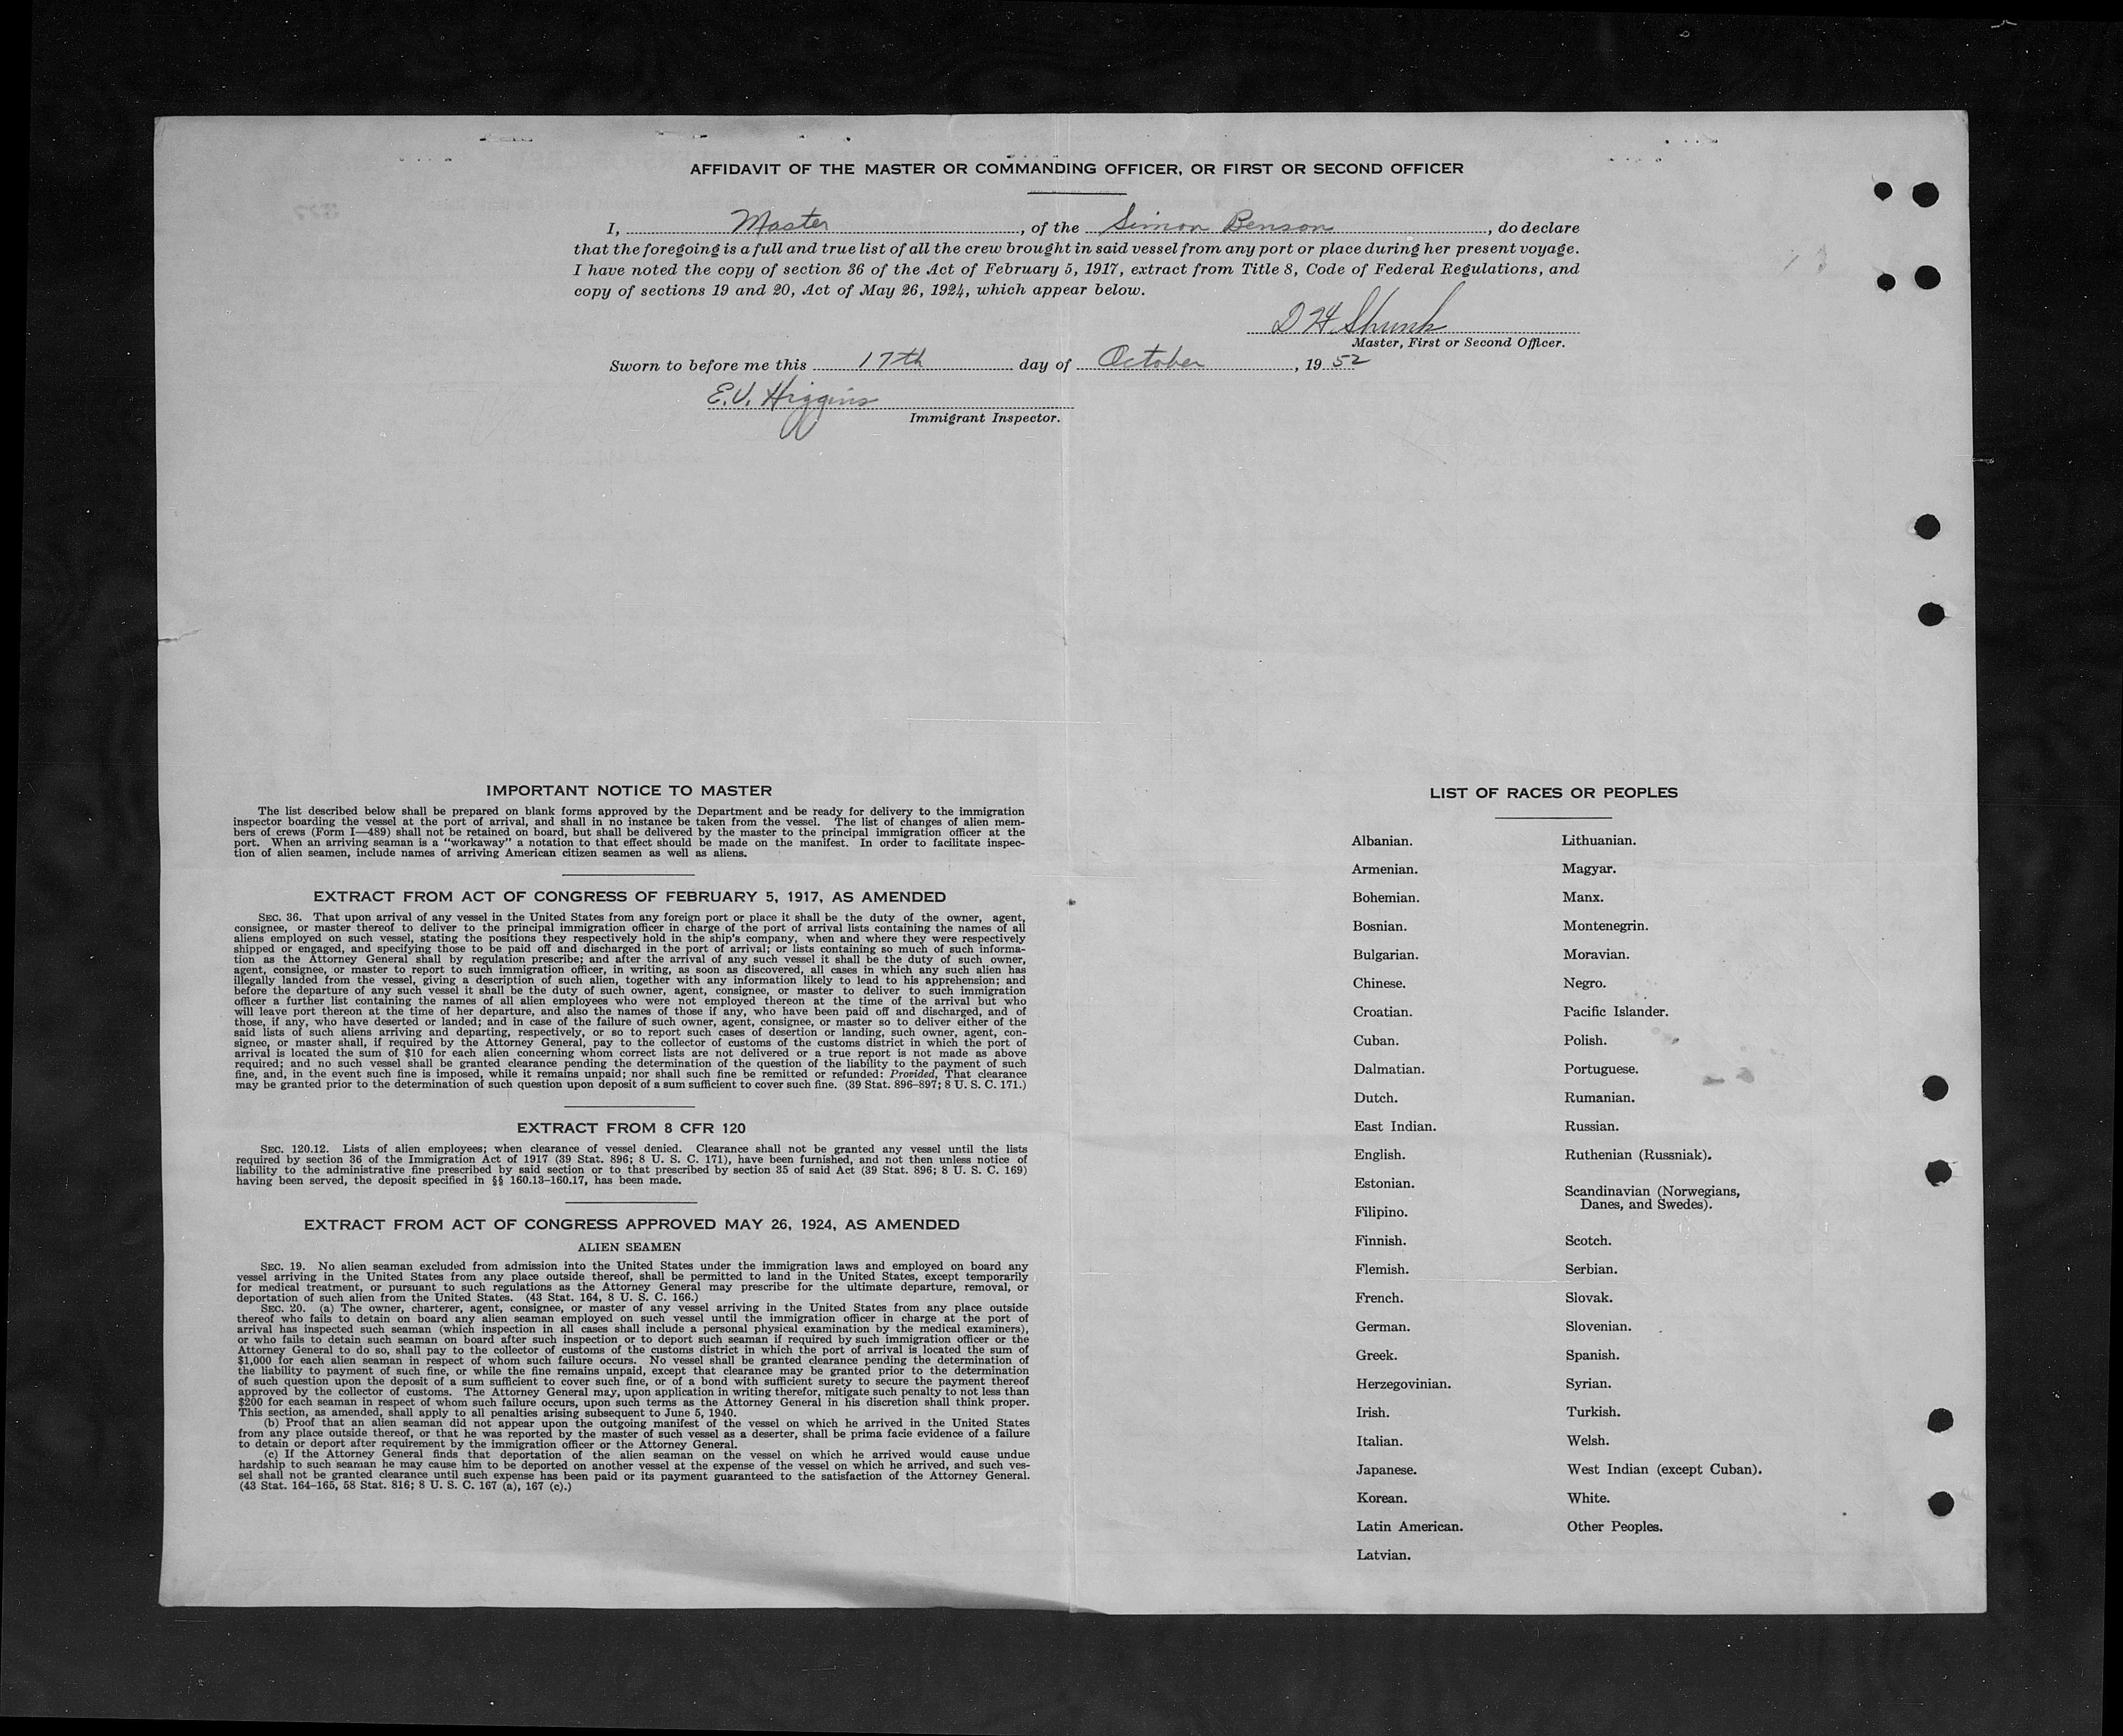 AFFIDAVIT OF THE MASTER OR COMMANDING OFFICER, OR FIRST OR SECOND OFFICER
I, Master, of the Simon Benson, do declare
that the foregoing is a full and true list of all the crew brought in said vessel from any port or place during her present voyage.
I have noted the copy of section 36 of the Act of February 5, 1917, extract from Title 8, Code of Federal Regulations, and
copy of sections 19 and 20, Act of May 26, 1924, which appear below.
D H Shunk
Master, First or Second Officer.
Sworn to before me this 17th day of October, 1952
E.V. Higgins
Immigrant Inspector.
IMPORTANT NOTICE TO MASTER
The list described below shall be prepared on blank forms approved by the Department and be ready for delivery to the immigration
inspector boarding the vessel at the port of arrival, and shall in no instance be taken from the vessel. The list of changes of alien mem-
bers of crews (Form I—489) shall not be retained on board, but shall be delivered by the master to the principal immigration officer at the
port. When an arriving seaman is a "workaway" a notation to that effect should be made on the manifest. In order to facilitate inspec-
tion of alien seamen, include names of arriving American citizen seamen as well as aliens.
EXTRACT FROM ACT OF CONGRESS OF FEBRUARY 5, 1917, AS AMENDED
SEC. 36. That upon arrival of any vessel in the United States from any foreign port or place it shall be the duty of the owner, agent,
consignee, or master thereof to deliver to the principal immigration officer in charge of the port of arrival lists containing the names of all
aliens employed on such vessel, stating the positions they respectively hold in the ship's company, when and where they were respectively
shipped or engaged, and specifying those to be paid off and discharged in the port of arrival; or lists containing so much of such informa-
tion as the Attorney General shall by regulation prescribe; and after the arrival of any such vessel it shall be the duty of such owner,
agent, consignee, or master to report to such immigration officer, in writing, as soon as discovered, all cases in which any such alien has
illegally landed from the vessel, giving a description of such alien, together with any information likely to lead to his apprehension; and
before the departure of any such vessel it shall be the duty of such owner, agent, consignee, or master to deliver to such immigration
officer a further list containing the names of all alien employees who were not employed thereon at the time of the arrival but who
will leave port thereon at the time of her departure, and also the names of those if any, who have been paid off and discharged, and of
those, if any, who have deserted or landed; and in case of the failure of such owner, agent, consignee, or master so to deliver either of the
said lists of such aliens arriving and departing, respectively, or so to report such cases of desertion or landing, such owner, agent, con-
signee, or master shall, if required by the Attorney General, pay to the collector of customs of the customs district in which the port of
arrival is located the sum of $10 for each alien concerning whom correct lists are not delivered or a true report is not made as above
required; and no such vessel shall be granted clearance pending the determination of the question of the liability to the payment of such
fine, and, in the event such fine is imposed, while it remains unpaid; nor shall such fine be remitted or refunded: Provided, That clearance
may be granted prior to the determination of such question upon deposit of a sum sufficient to cover such fine. (39 Stat. 896–897; 8 U. S. C. 171.)
EXTRACT FROM 8 CFR 120
SEC. 120.12. Lists of alien employees; when clearance of vessel denied. Clearance shall not be granted any vessel until the lists
required by section 36 of the Immigration Act of 1917 (39 Stat. 896; 8 U. S. C. 171), have been furnished, and not then unless notice of
liability to the administrative fine prescribed by said section or to that prescribed by section 35 of said Act (39 Stat. 896; 8 U. S. C. 169)
having been served, the deposit specified in §§ 160.13–160.17, has been made.
EXTRACT FROM ACT OF CONGRESS APPROVED MAY 26, 1924, AS AMENDED
ALIEN SEAMEN
SEC. 19. No alien seaman excluded from admission into the United States under the immigration laws and employed on board any
vessel arriving in the United States from any place outside thereof, shall be permitted to land in the United States, except temporarily
for medical treatment, or pursuant to such regulations as the Attorney General may prescribe for the ultimate departure, removal, or
deportation of such alien from the United States. (43 Stat. 164, 8 U. S. C. 166.)
SEC. 20. (a) The owner, charterer, agent, consignee, or master of any vessel arriving in the United States from any place outside
thereof who fails to detain on board any alien seaman employed on such vessel until the immigration officer in charge at the port of
arrival has inspected such seaman (which inspection in all cases shall include a personal physical examination by the medical examiners),
or who fails to detain such seaman on board after such inspection or to deport such seaman if required by such immigration officer or the
Attorney General to do so, shall pay to the collector of customs of the customs district in which the port of arrival is located the sum of
$1,000 for each alien seaman in respect of whom such failure occurs. No vessel shall be granted clearance pending the determination of
the liability to payment of such fine, or while the fine remains unpaid, except that clearance may be granted prior to the determination
of such question upon the deposit of a sum sufficient to cover such fine, or of a bond with sufficient surety to secure the payment thereof
approved by the collector of customs. The Attorney General may, upon application in writing therefor, mitigate such penalty to not less than
$200 for each seaman in respect of whom such failure occurs, upon such terms as the Attorney General in his discretion shall think proper.
This section, as amended, shall apply to all penalties arising subsequent to June 5, 1940.
(b) Proof that an alien seaman did not appear upon the outgoing manifest of the vessel on which he arrived in the United States
from any place outside thereof, or that he was reported by the master of such vessel as a deserter, shall be prima facie evidence of a failure
to detain or deport after requirement by the immigration officer or the Attorney General.
(c) If the Attorney General finds that deportation of the alien seaman on the vessel on which he arrived would cause undue
hardship to such seaman he may cause him to be deported on another vessel at the expense of the vessel on which he arrived, and such ves-
sel shall not be granted clearance until such expense has been paid or its payment guaranteed to the satisfaction of the Attorney General.
(43 Stat. 164–165, 58 Stat. 816; 8 U. S. C. 167 (a), 167 (c).)
LIST OF RACES OR PEOPLES
Albanian.
Armenian.
Bohemian.
Bosnian.
Bulgarian.
Chinese.
Croatian.
Cuban.
Dalmatian.
Dutch.
East Indian.
English.
Estonian.
Filipino.
Finnish.
Flemish.
French.
German.
Greek.
Herzegovinian.
Irish.
Italian.
Japanese.
Korean.
Latin American.
Latvian.
Lithuanian.
Magyar.
Manx.
Montenegrin.
Moravian.
Negro.
Pacific Islander.
Polish.
Portuguese.
Rumanian.
Russian.
Ruthenian (Russniak).
Scandinavian (Norwegians,
Danes, and Swedes).
Scotch.
Serbian.
Slovak.
Slovenian.
Spanish.
Syrian.
Turkish.
Welsh.
West Indian (except Cuban).
White.
Other Peoples.